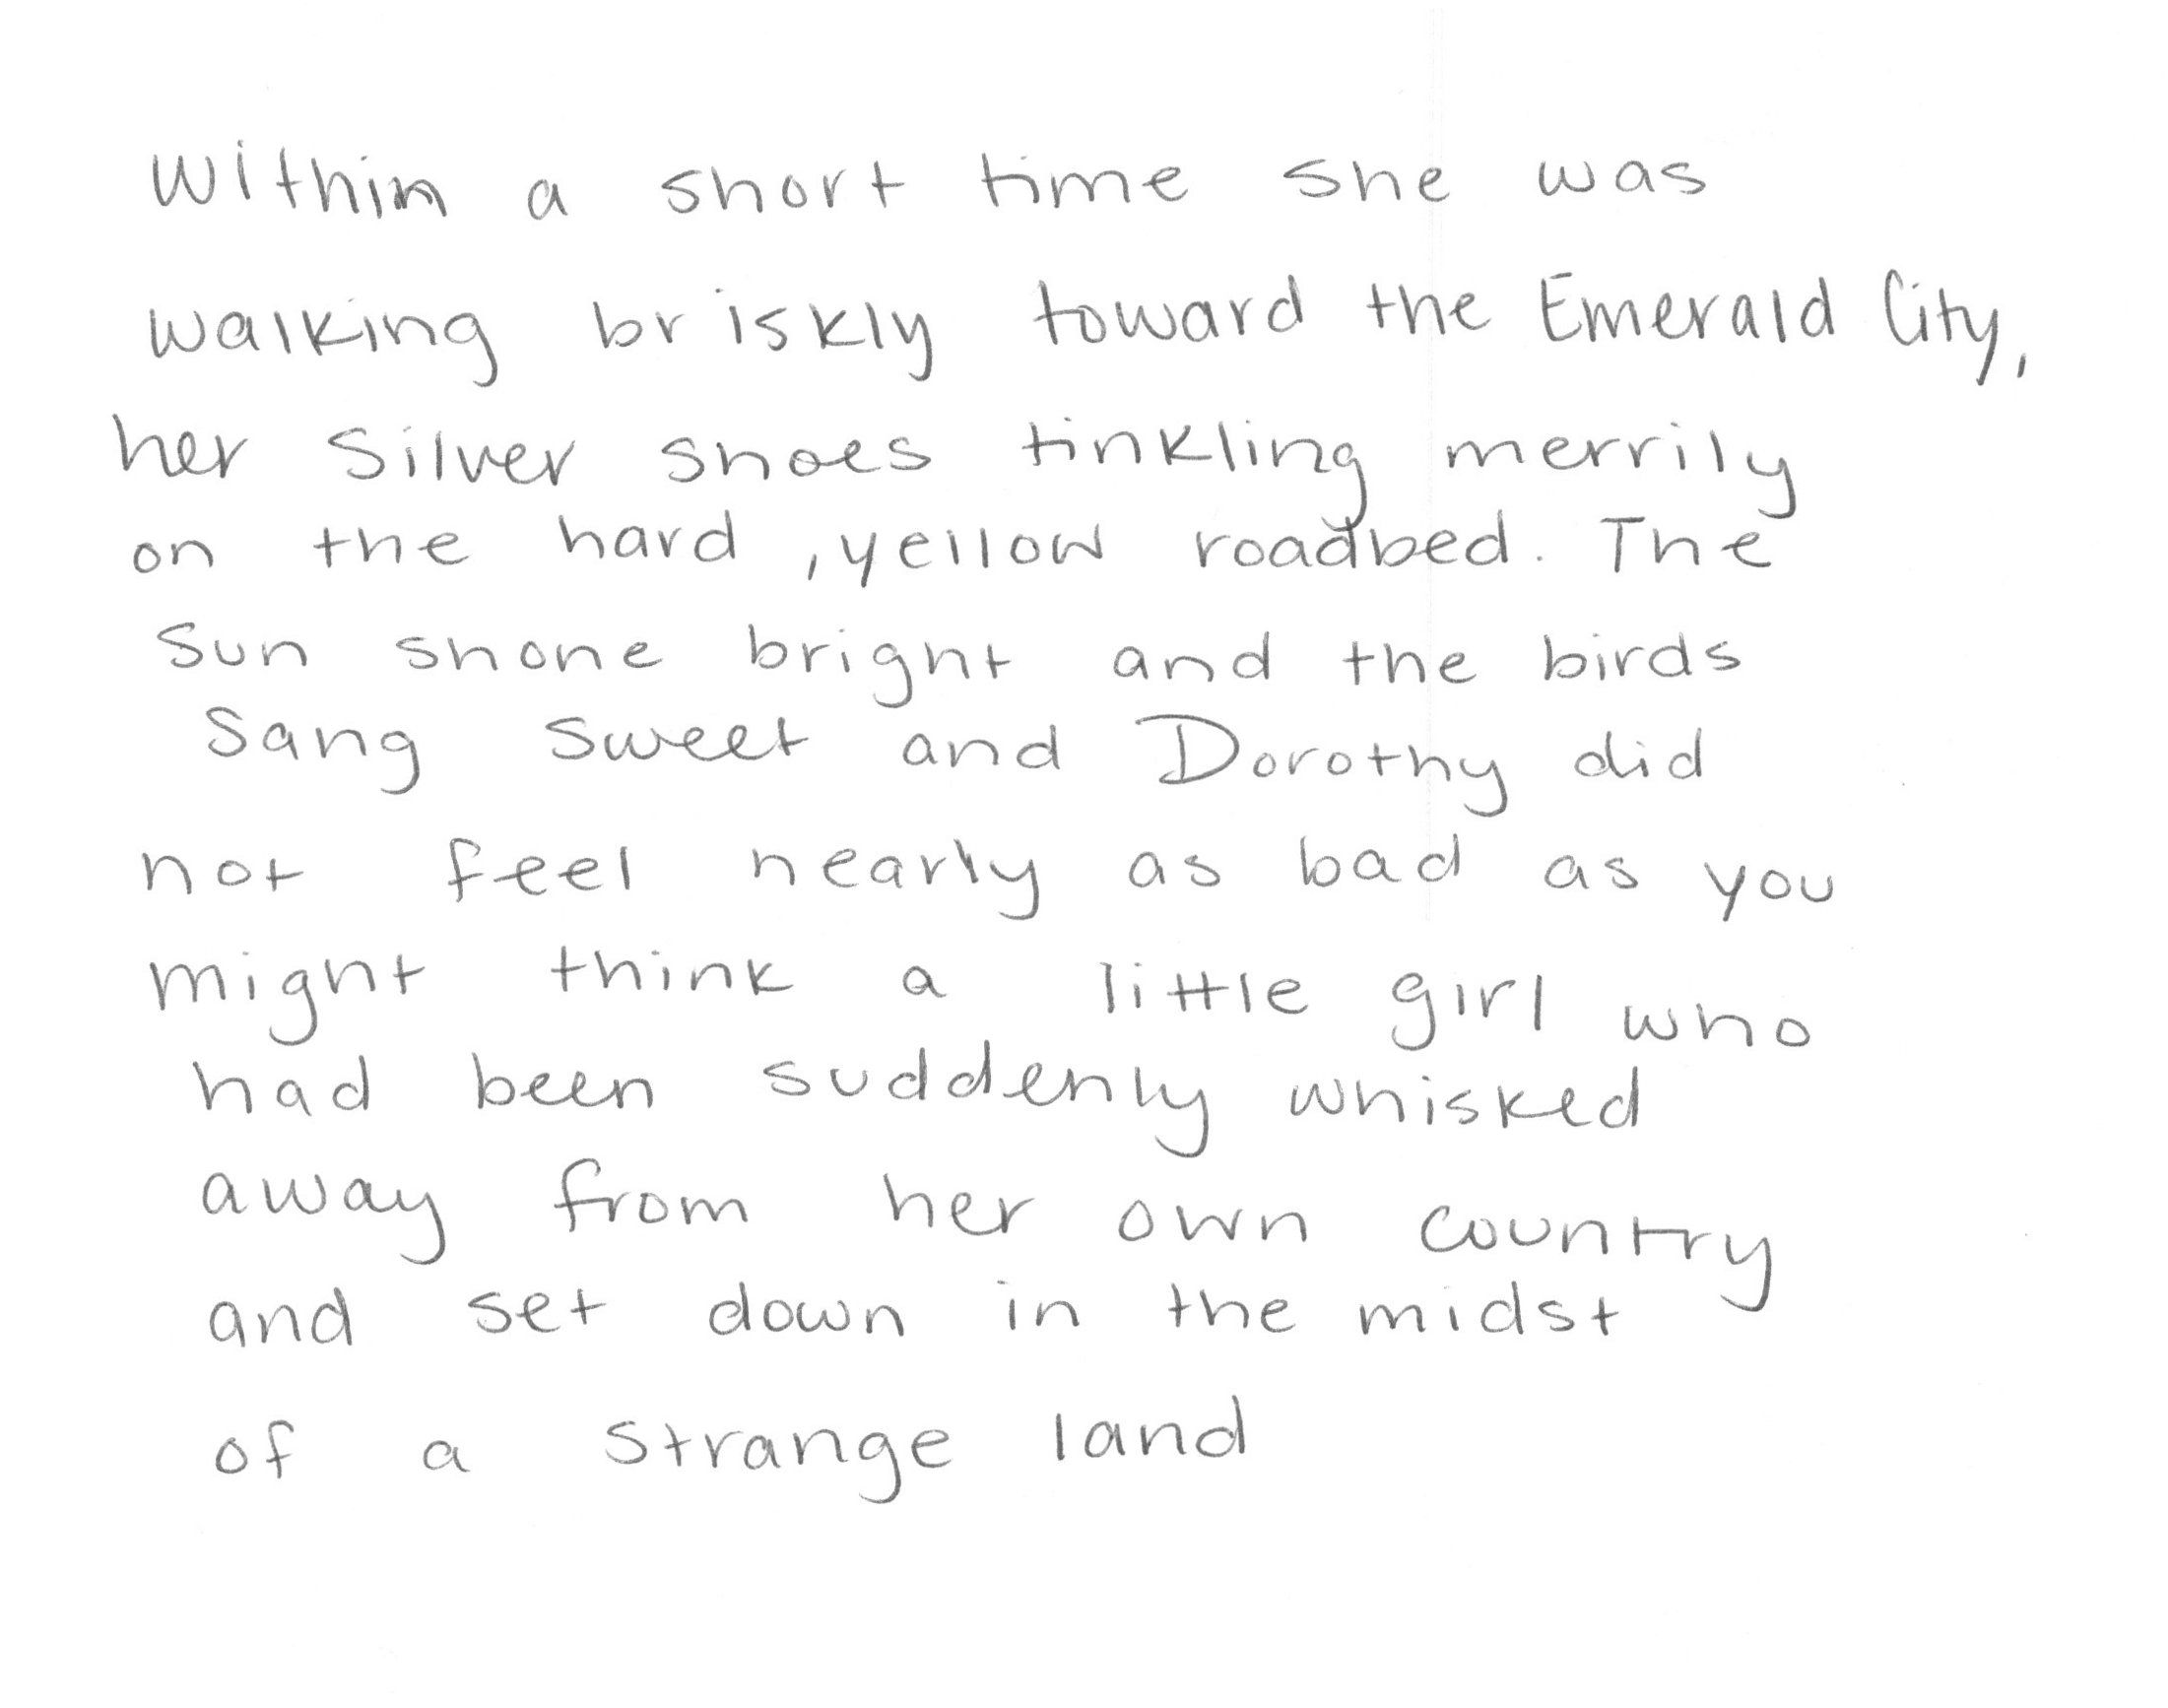 Within a short time she was
walking briskly toward the Emerald City,
her silver shoes tinkling merrily
on the hard, yellow roadbed. The
sun shone bright and the birds
sang sweet and Dorothy did
not feel nearly as bad as you
might think a little girl who
had been suddenly whisked
away from her own country
and set down in the midst
of a strange land